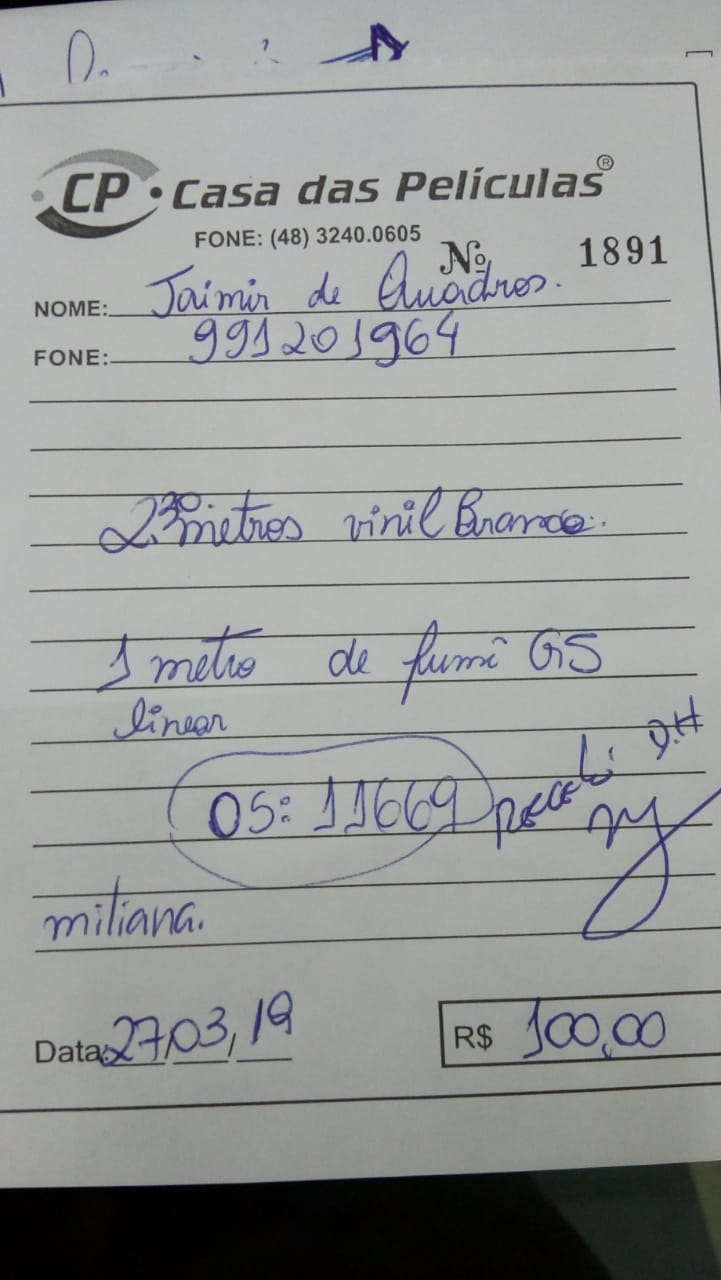 CP • Casa das Películas®
FONE: (48) 3240.0605
Nº 1891
NOME: Jaimir de Quadros.
FONE: 991201964
2.30 metros vinil Branco.
1 metro de fumê G5
linear
OS: 11669 Recebi D.H
miliana.
Data: 27/03/19
R$ 100,00